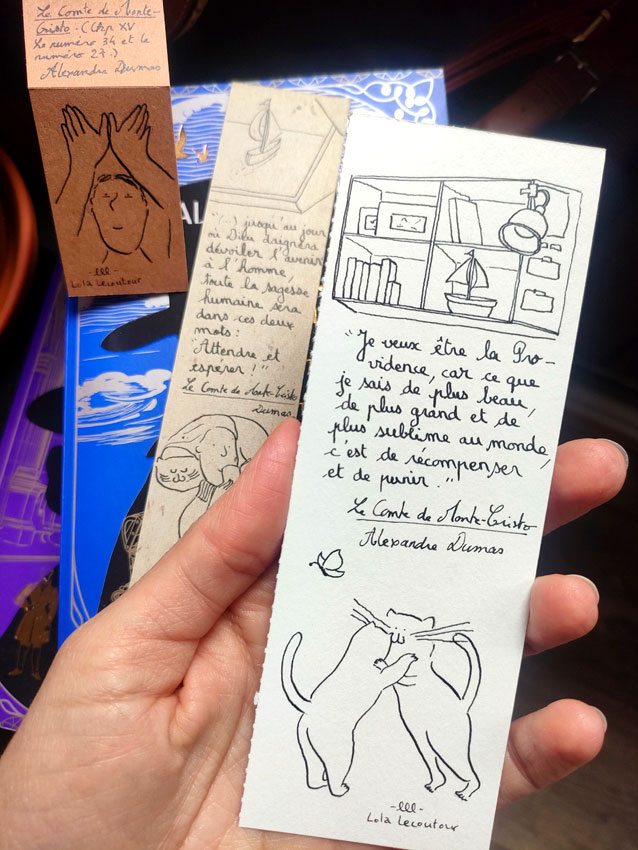 Le Comte de Monte-
Cristo. (Chp XV
Le numéro 34 et le
numéro 27.)
Alexandre Dumas
-lll-
Lola Lecoutour
AL
"(...) jusqu'au jour
où Dieu daignera
dévoiler l'avenir
à l'homme,
toute la sagesse
humaine sera
dans ces deux
mots:
"Attendre et
espérer!"
Le Comte de Monte-Cristo
Dumas
"Je veux être la Pro-
vidence, car ce que
je sais de plus beau,
de plus grand et de
plus sublime au monde,
c'est de récompenser
et de punir."
Le Comte de Monte-Cristo
Alexandre Dumas
-lll-
Lola Lecoutour